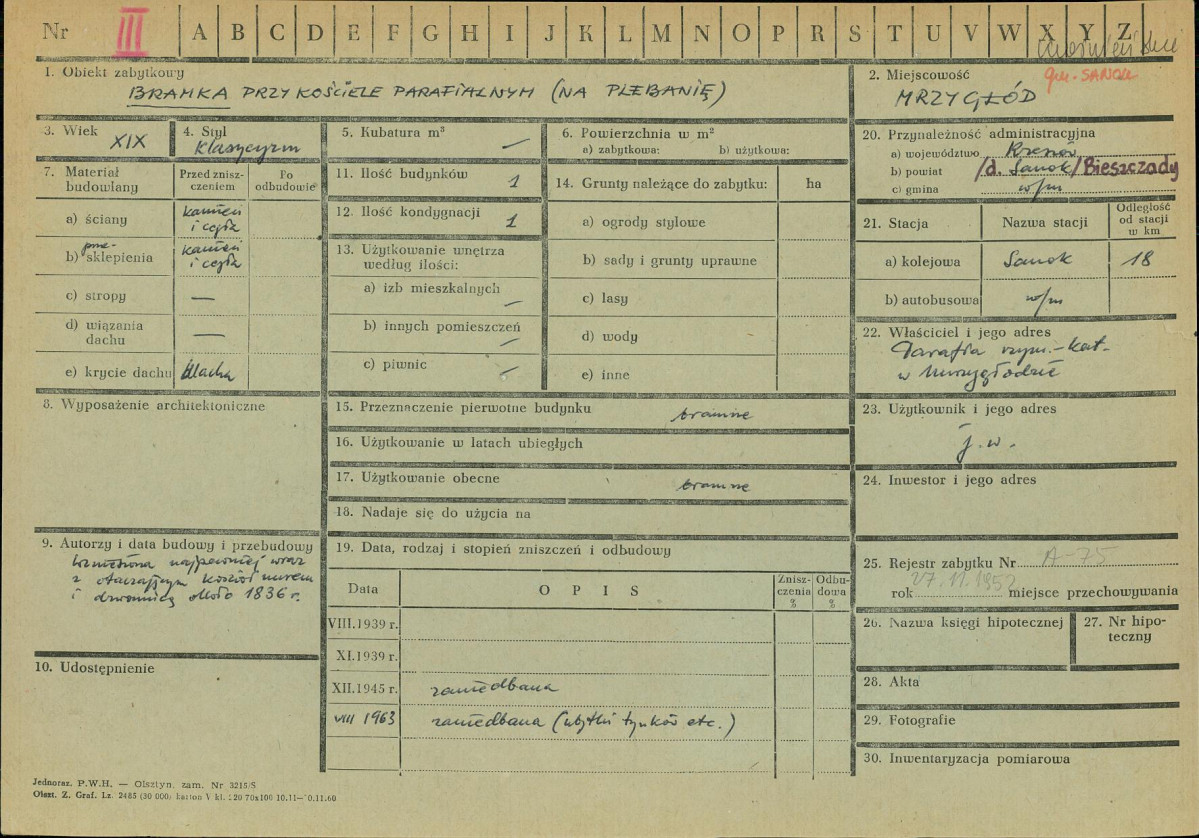 Nr III A B C D E F G H I J K L M N O P R S T U V W X Y Z
gm. SANOK
1. Obiekt zabytkowy
BRAMKA PRZY KOŚCIELE PARAFIALNYM (NA PLEBANIĘ)
2. Miejscowość
MRZYGŁÓD
3. Wiek
XIX
4. Styl
Klasycyzm
5. Kubatura m³
—
6. Powierzchnia w m²
a) zabytkowa: b) użytkowa:
7. Materiał budowlany
Przed zniszczeniem
Po odbudowie
a) ściany
kamień
i cegła
prze-
b) sklepienia
kamień
i cegła
c) stropy —
d) wiązania
dachu —
e) krycie dachu blacha
8. Wyposażenie architektoniczne
9. Autorzy i data budowy i przebudowy
wzniesiona najpewniej wraz
z otaczającym kościół murem
i dzwonnicą około 1836 r.
10. Udostępnienie
11. Ilość budynków 1
12. Ilość kondygnacji 1
13. Użytkowanie wnętrza
według ilości:
a) izb mieszkalnych —
b) innych pomieszczeń —
c) piwnic —
14. Grunty należące do zabytku: ha
a) ogrody stylowe
b) sady i grunty uprawne
c) lasy
d) wody
e) inne
15. Przeznaczenie pierwotne budynku bramne
16. Użytkowanie w latach ubiegłych
17. Użytkowanie obecne bramne
18. Nadaje się do użycia na
19. Data, rodzaj i stopień zniszczeń i odbudowy
Data
OPIS
Zniszczenia %
Odbudowa %
VIII.1939 r.
XI.1939 r.
XII.1945 r. zaniedbana
VIII 1963 zaniedbana (ubytki tynków etc.)
20. Przynależność administracyjna
a) województwo Rzeszów
b) powiat /d. Sanok/Bieszczady
c) gmina w/m
21. Stacja
Nazwa stacji
Odległość
od stacji
w km
a) kolejowa Sanok 18
b) autobusowa w/m
22. Właściciel i jego adres
Parafia rzym.-kat.
w Mrzygłodzie
23. Użytkownik i jego adres
j.w.
24. Inwestor i jego adres
25. Rejestr zabytku Nr A-75
rok 27.11.1952 miejsce przechowywania
26. Nazwa księgi hipotecznej
27. Nr hipo-
teczny
28. Akta
29. Fotografie
30. Inwentaryzacja pomiarowa
Jednoraz. P.W.H. — Olsztyn, zam. Nr 3215/S
Olszt. Z. Graf. Lz. 2485 (30 000) karton V kl. 220 70x100 10.11—10.11.60